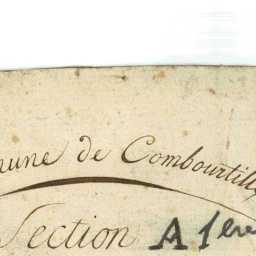 mune de Combourtillé
Section A 1ère